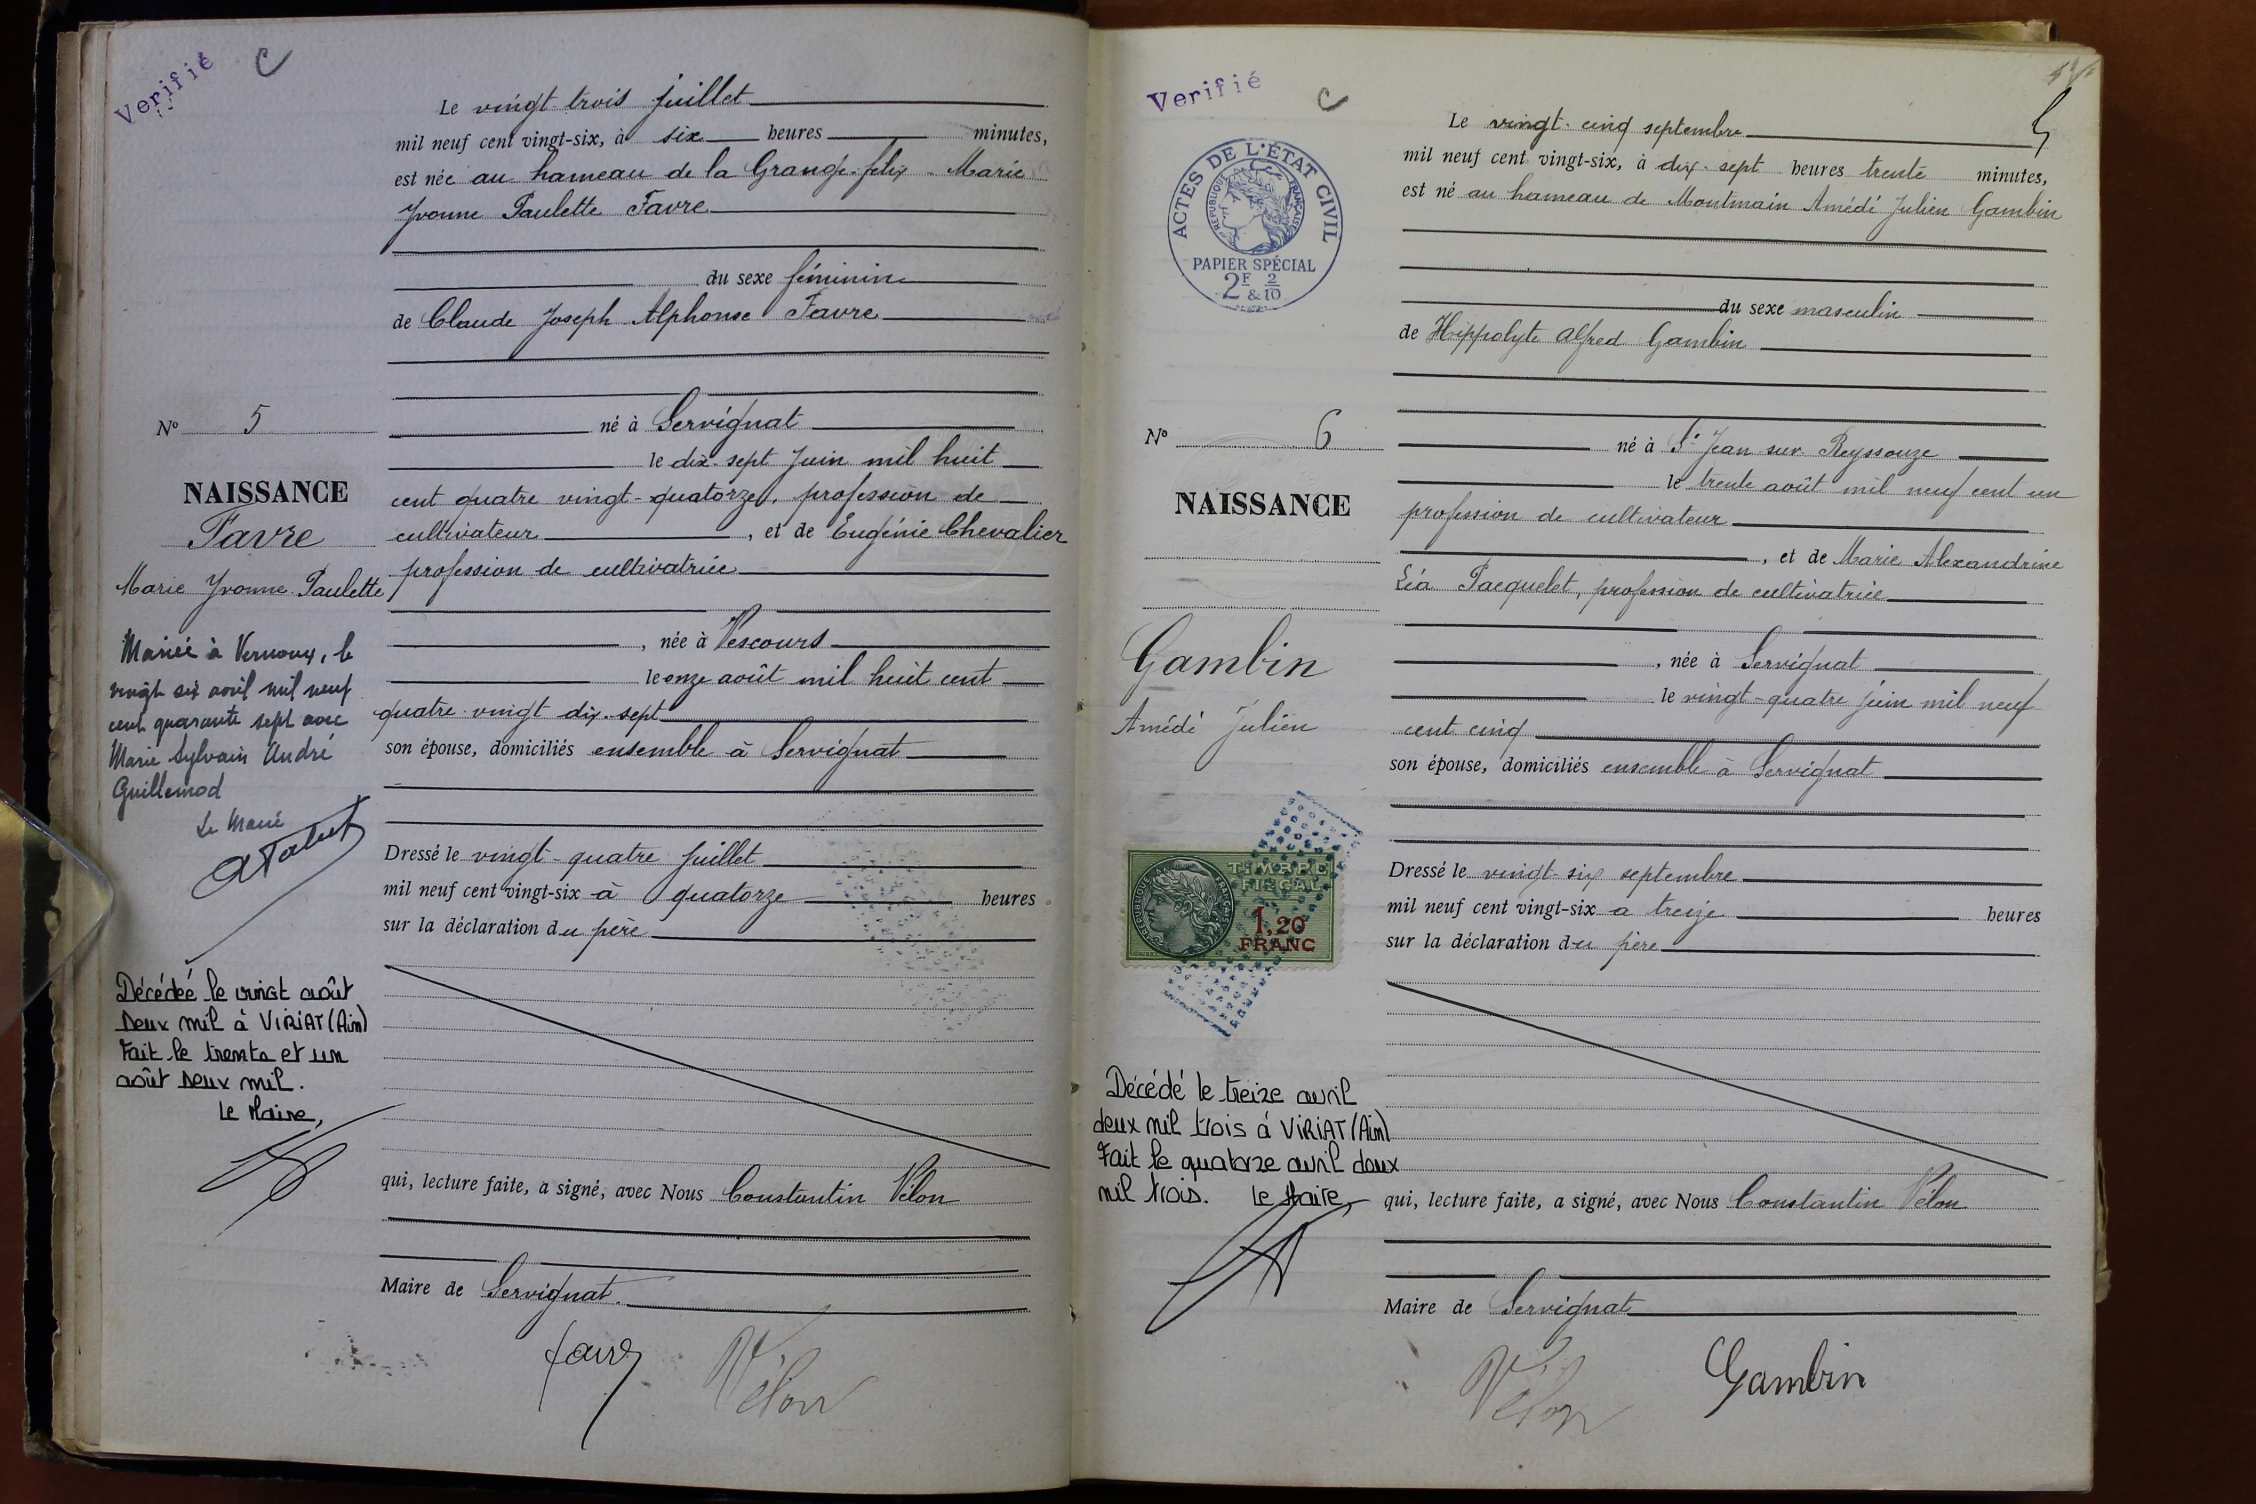 Verifié
C
Le vingt trois juillet
mil neuf cent vingt-six, à six heures minutes,
est née au hameau de la Grange-félix - Marie
Yvonne Paulette Favre
du sexe féminin
de Claude Joseph Alphonse Favre
né à Servignat
le dix-sept Juin mil huit
cent quatre vingt-quatorze, profession de
cultivateur, et de Eugénie Chevalier
profession de cultivatrice
, née à Vescours
le onze août mil huit cent
quatre-vingt dix-sept
son épouse, domiciliés ensemble à Servignat
Dressé le vingt-quatre juillet
mil neuf cent vingt-six à quatorze heures
sur la déclaration du père
qui, lecture faite, a signé, avec Nous Constantin Vélon
Maire de Servignat.
favre
Vélon
No 5
NAISSANCE
Favre
Marie Yvonne Paulette
Mariée à Vernoux, le
vingt six avril mil neuf
cent quarante sept avec
Marie Sylvain André
Guillemod
Le Maire
Décédée le vingt août
deux mil à VIRIAT (Ain)
Fait le trente et un
août deux mil.
Le Maire,
Verifié
C
5
Le vingt-cinq septembre
mil neuf cent vingt-six, à dix-sept heures trente minutes,
est né au hameau de Montmain Amédé Julien Gambin
du sexe masculin
de Hippolyte Alfred Gambin
né à St Jean sur Reyssouze
le trente août mil neuf cent un
profession de cultivateur
, et de Marie Alexandrine
Léa Pacquelet, profession de cultivatrice
, née à Servignat
le vingt-quatre juin mil neuf
cent cinq
son épouse, domiciliés ensemble à Servignat
Dressé le vingt-six septembre
mil neuf cent vingt-six a treize heures
sur la déclaration du père
qui, lecture faite, a signé, avec Nous Constantin Vélon
Maire de Servignat
Vélon
Gambin
ACTES DE L'ÉTAT CIVIL
RÉPUBLIQUE FRANÇAISE
PAPIER SPÉCIAL
2F & 2/10
No 6
NAISSANCE
Gambin
Amédé Julien
TIMBRE
FISCAL
1,20
FRANC
Décédé le treize avril
deux mil trois à VIRIAT (Ain)
Fait le quatorze avril deux
mil trois. Le Maire,